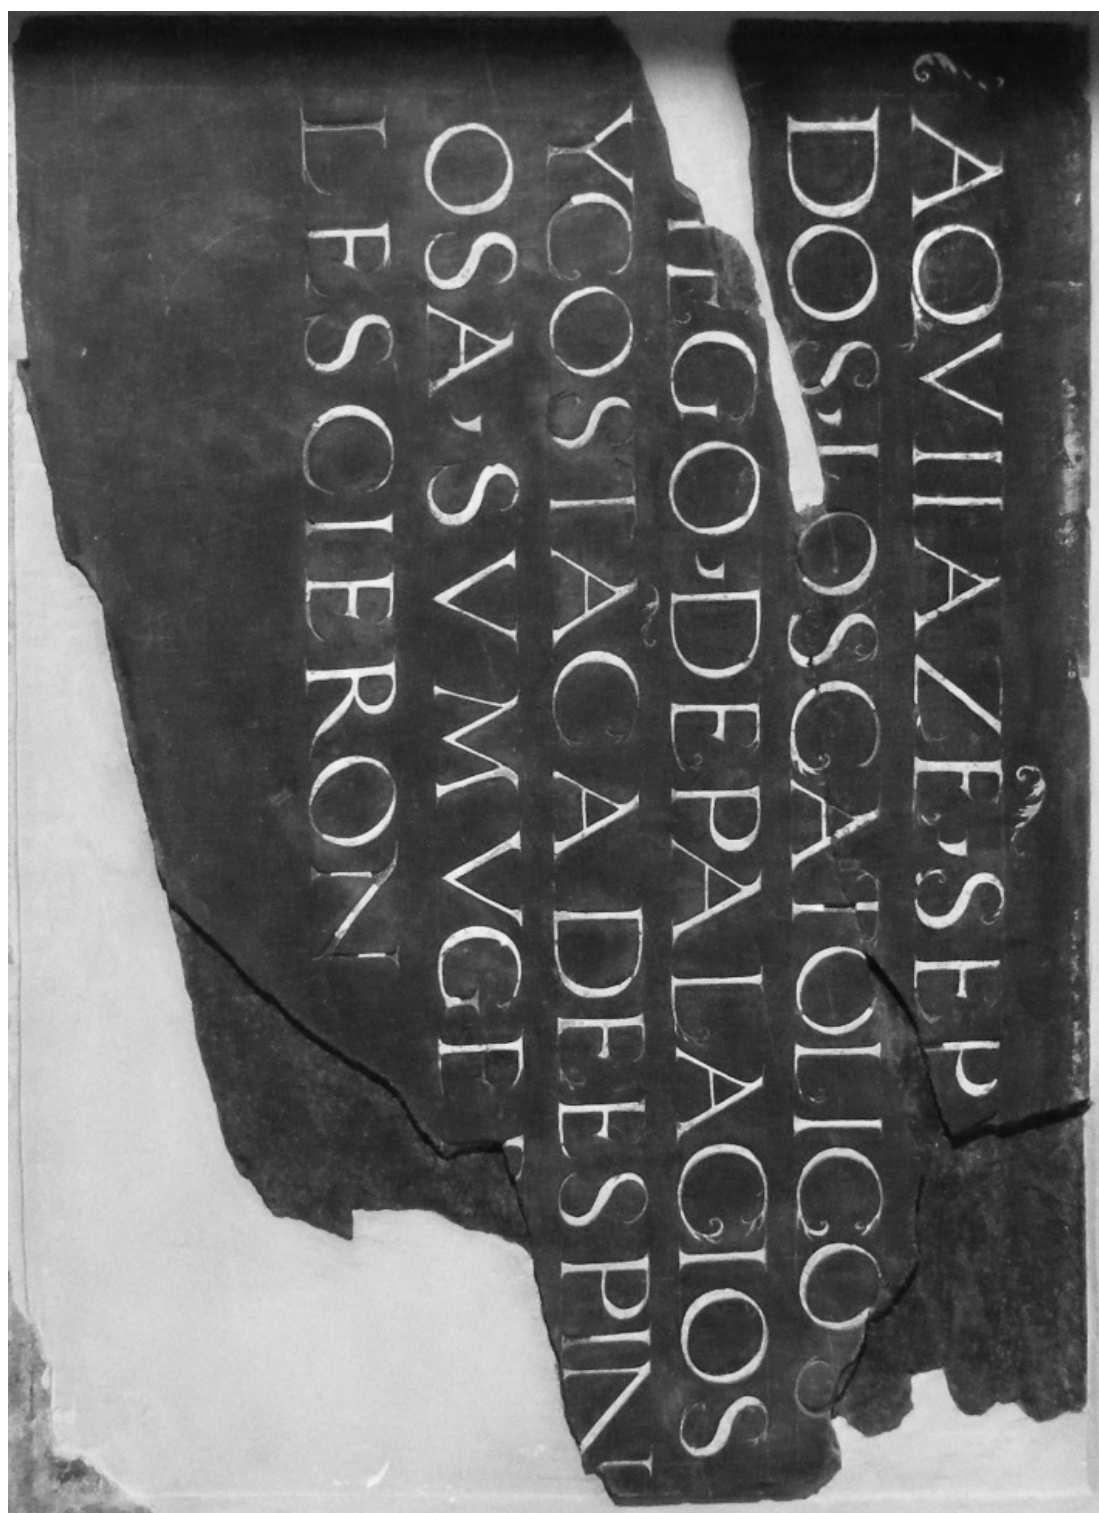 AQVI IAZĒ, SEP
DOS, LOS CATOLICOS
IEGO, DE PALACIOS
Y COSTĀCA DE ESPIN
OSA, SV MVGER
LESCIERON